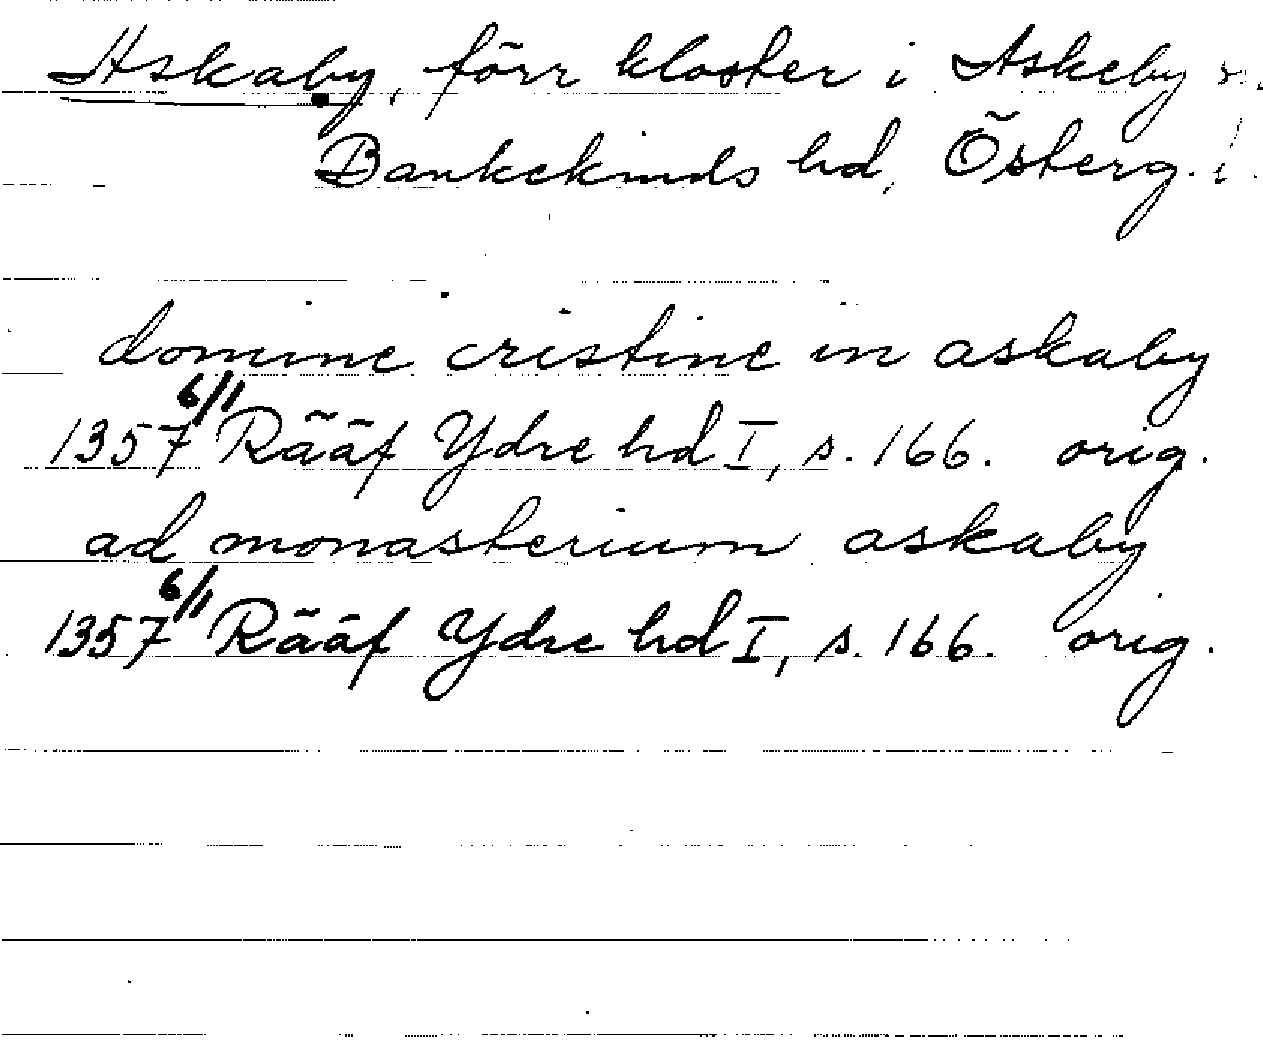 Askaby, förr kloster i Askeby s.,
Bankekinds hd, Österg. l.
domine cristine in askaby
1357 6/1 Rääf Ydre hd I, s. 166. orig.
ad monasterium askaby
1357 6/1 Rääf Ydre hd I, s. 166. orig.